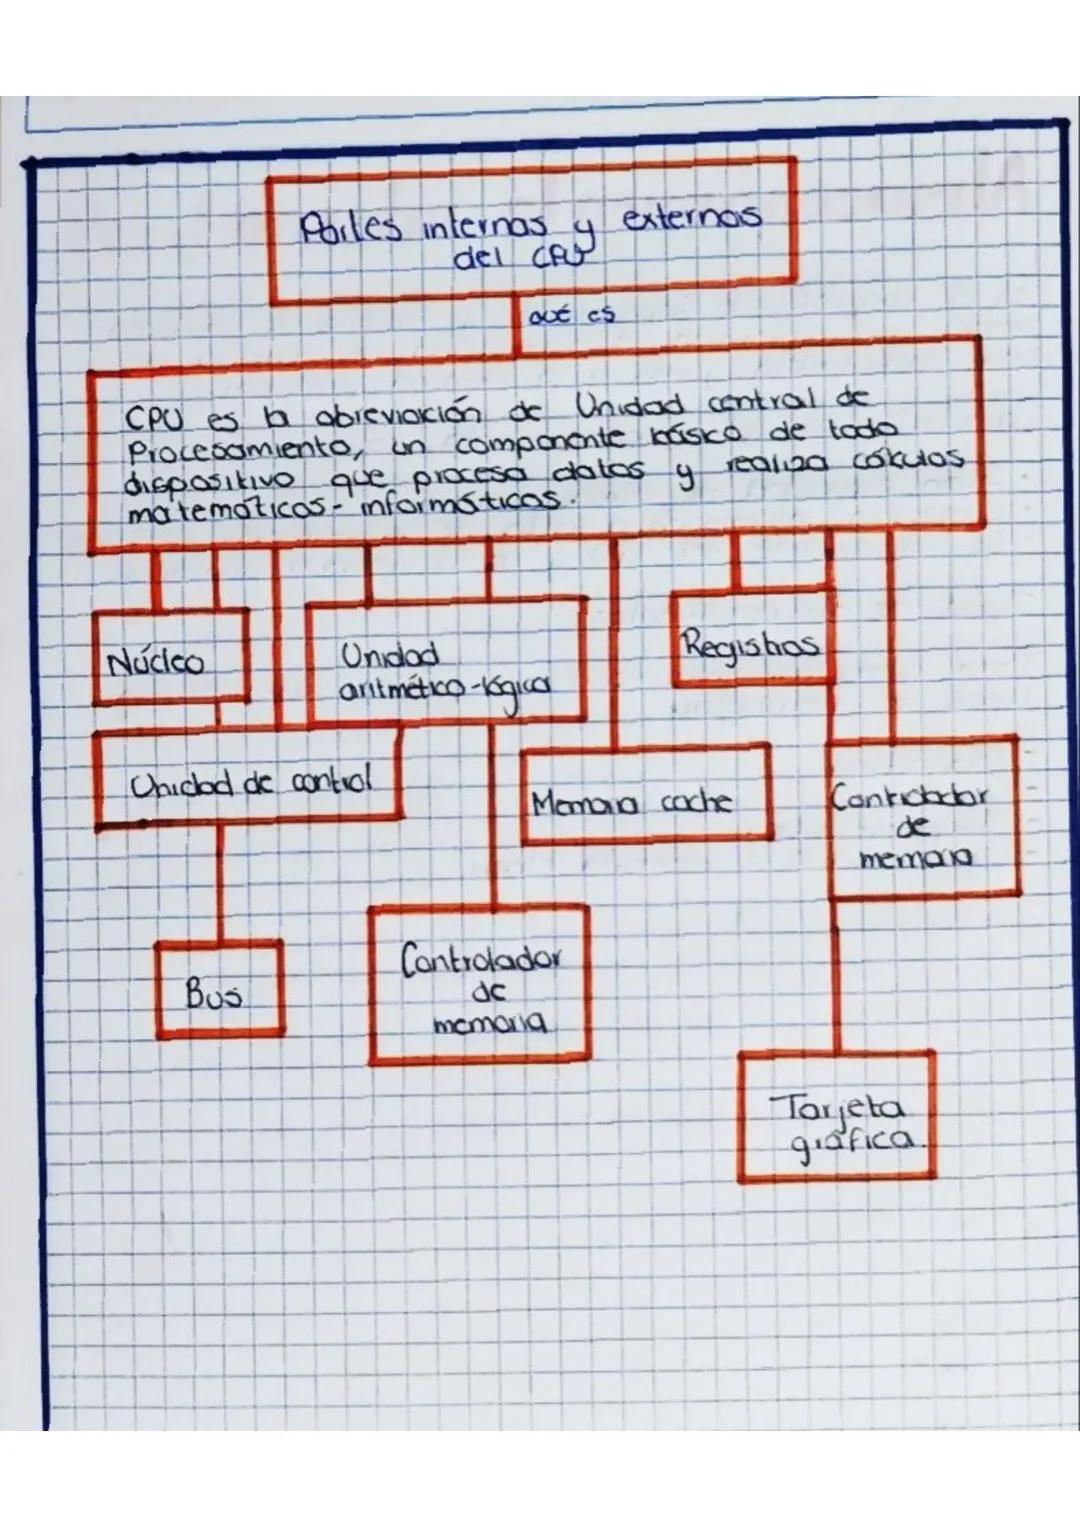 Partes internas y externas
del CPU
qué es
CPU es la abreviación de Unidad central de
Procesamiento, un componente básico de todo
dispositivo que procesa datos y realiza cálculos
matemáticos - informáticos.
Núcleo
Unidad
aritmético-lógica
Registros
Unidad de control
Memoria cache
Controlador
de
memoria
Bus
Controlador
de
memoria
Tarjeta
gráfica.